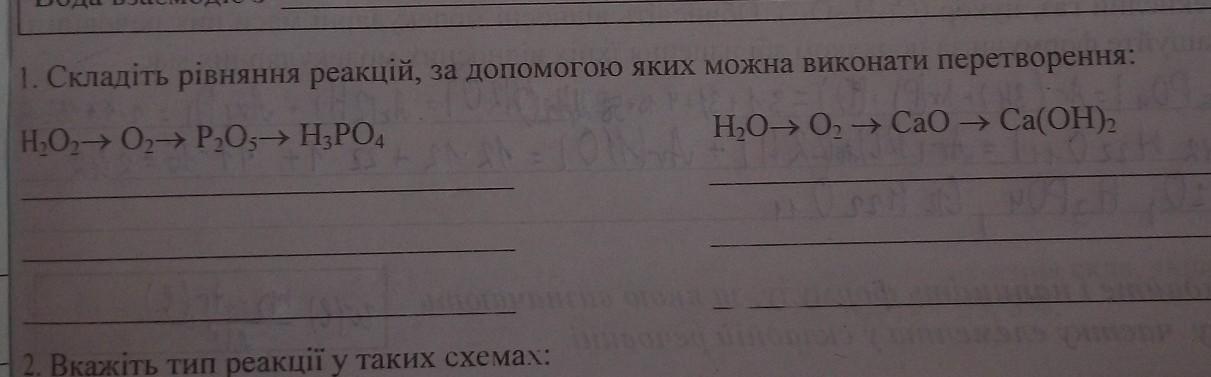 1. Складіть рівняння реакцій, за допомогою яких можна виконати перетворення:
H₂O₂→ O₂→ P₂O₅→ H₃PO₄
H₂O→ O₂ → CaO → Ca(OH)₂
2. Вкажіть тип реакції у таких схемах: